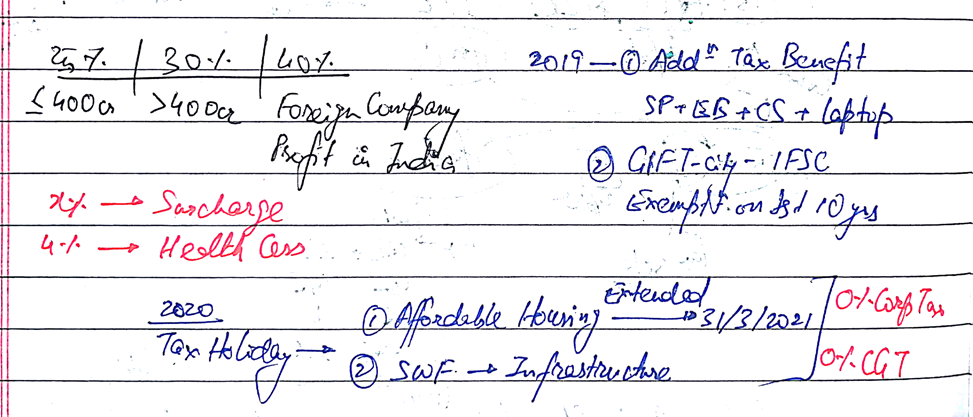 25% | 30% | 40%
≤400cr >400cr Foreign Company
Profit in India
x% → Surcharge
4% → Health Cess
2019 — ① Addⁿ Tax Benefit
SP + + CS + Laptop
② GIFT-City - IFSC
Exemptⁿ on 10 yrs
2020
Tax Holiday →
① Affordable Housing Extended → 31/3/2021
② SWF → Infrastructure
0% Corp Tax
0% CGT